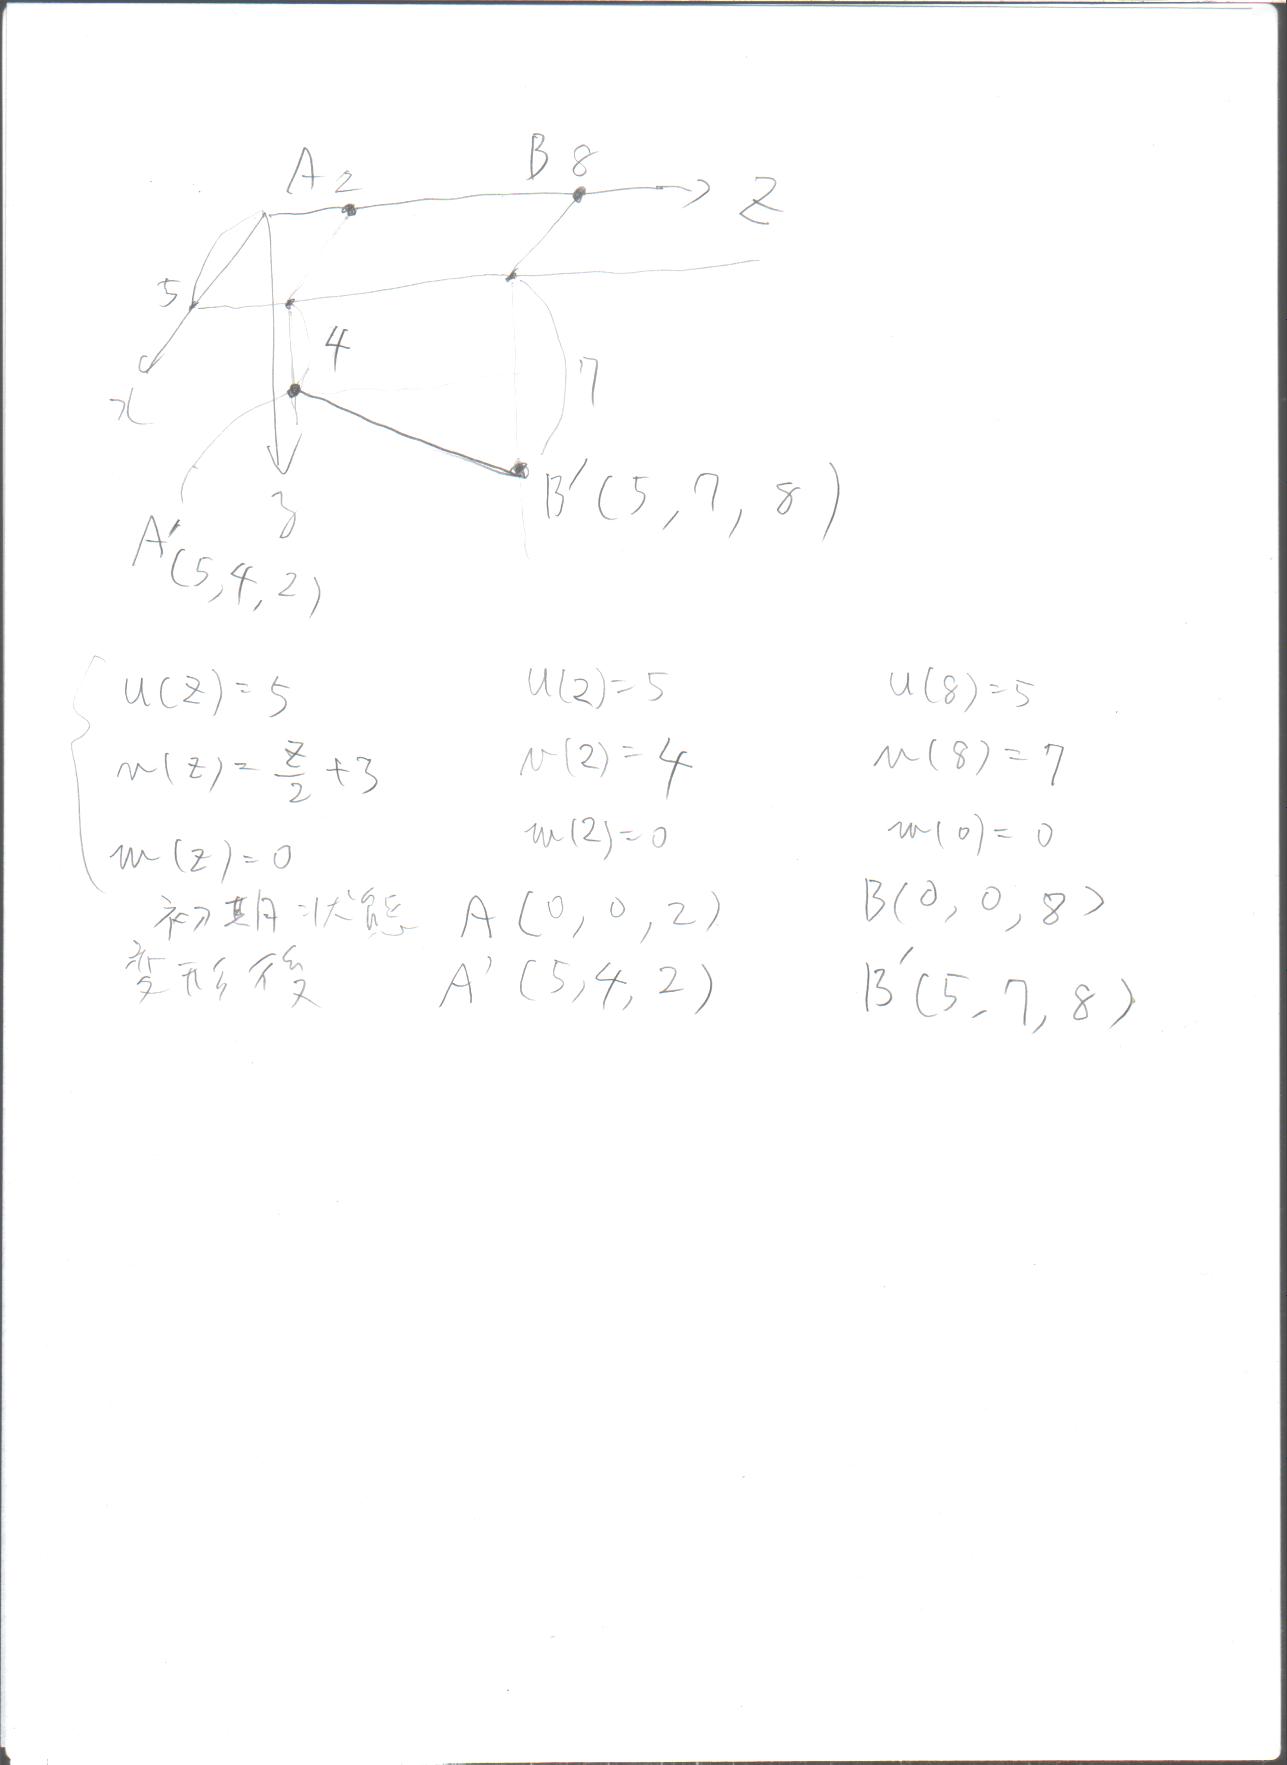 A 2 B 8 z
5
4
7
x
y
B'(5, 7, 8)
A'(5, 4, 2)
u(z)=5 u(2)=5 u(8)=5
v(z)=z/2+3 v(2)=4 v(8)=7
w(z)=0 w(2)=0 w(0)=0
初期状態 A(0, 0, 2) B(0, 0, 8)
変形後 A'(5, 4, 2) B'(5, 7, 8)